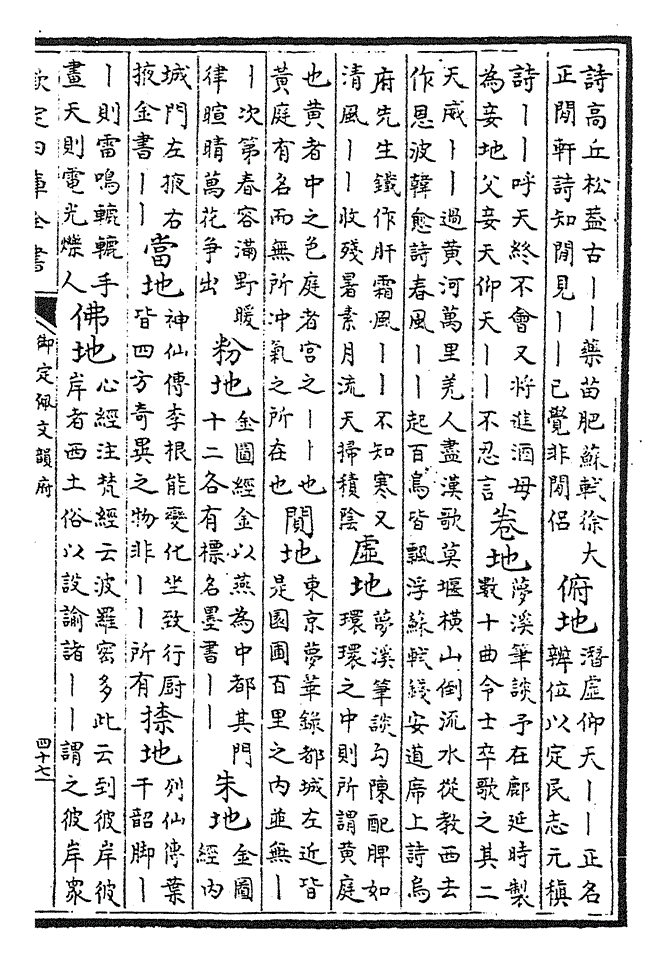 詩高丘松蓋古丨丨藥苗肥蘇軾徐大
正閒軒詩知閒見丨丨已覺非閒侶
俯地
潛虛仰天丨丨正名
辨位以定民志元稹
詩丨丨呼天終不會又將進酒母
為妾地父妾天仰天丨丨不忍言
卷地
夢溪筆談予在鄜延時製
數十曲令士卒歌之其二
天威丨丨過黃河萬里羌人盡漢歌莫堰橫山倒流水從教西去
作恩波韓愈詩春風丨丨起百鳥皆飄浮蘇軾錢安道席上詩烏
府先生鐵作肝霜風丨丨不知寒又
清風丨丨收殘暑素月流天掃積陰
虛地
夢溪筆談勾陳配脾如
環環之中則所謂黃庭
也黃者中之色庭者宮之丨丨也
黃庭有名而無所沖氣之所在也
閒地
東京夢華錄都城左近皆
是園圃百里之內並無丨
丨次第春容滿野暖
律暄晴萬花爭出
粉地
金圖經金以燕為中都其門
十二各有標名墨書丨丨
朱地
金圖
經內
城門左掖右
掖金書丨丨
當地
神仙傳李根能變化坐致行厨
皆四方奇異之物非丨丨所有
捺地
列仙傳葉
千韶脚丨
丨則雷鳴轆轆手
畫天則電光爍人
佛地
心經注梵經云波羅密多此云到彼岸彼
岸者西土俗以設諭諸丨丨謂之彼岸眾
欽定四庫全書
御定佩文韻府
四十七